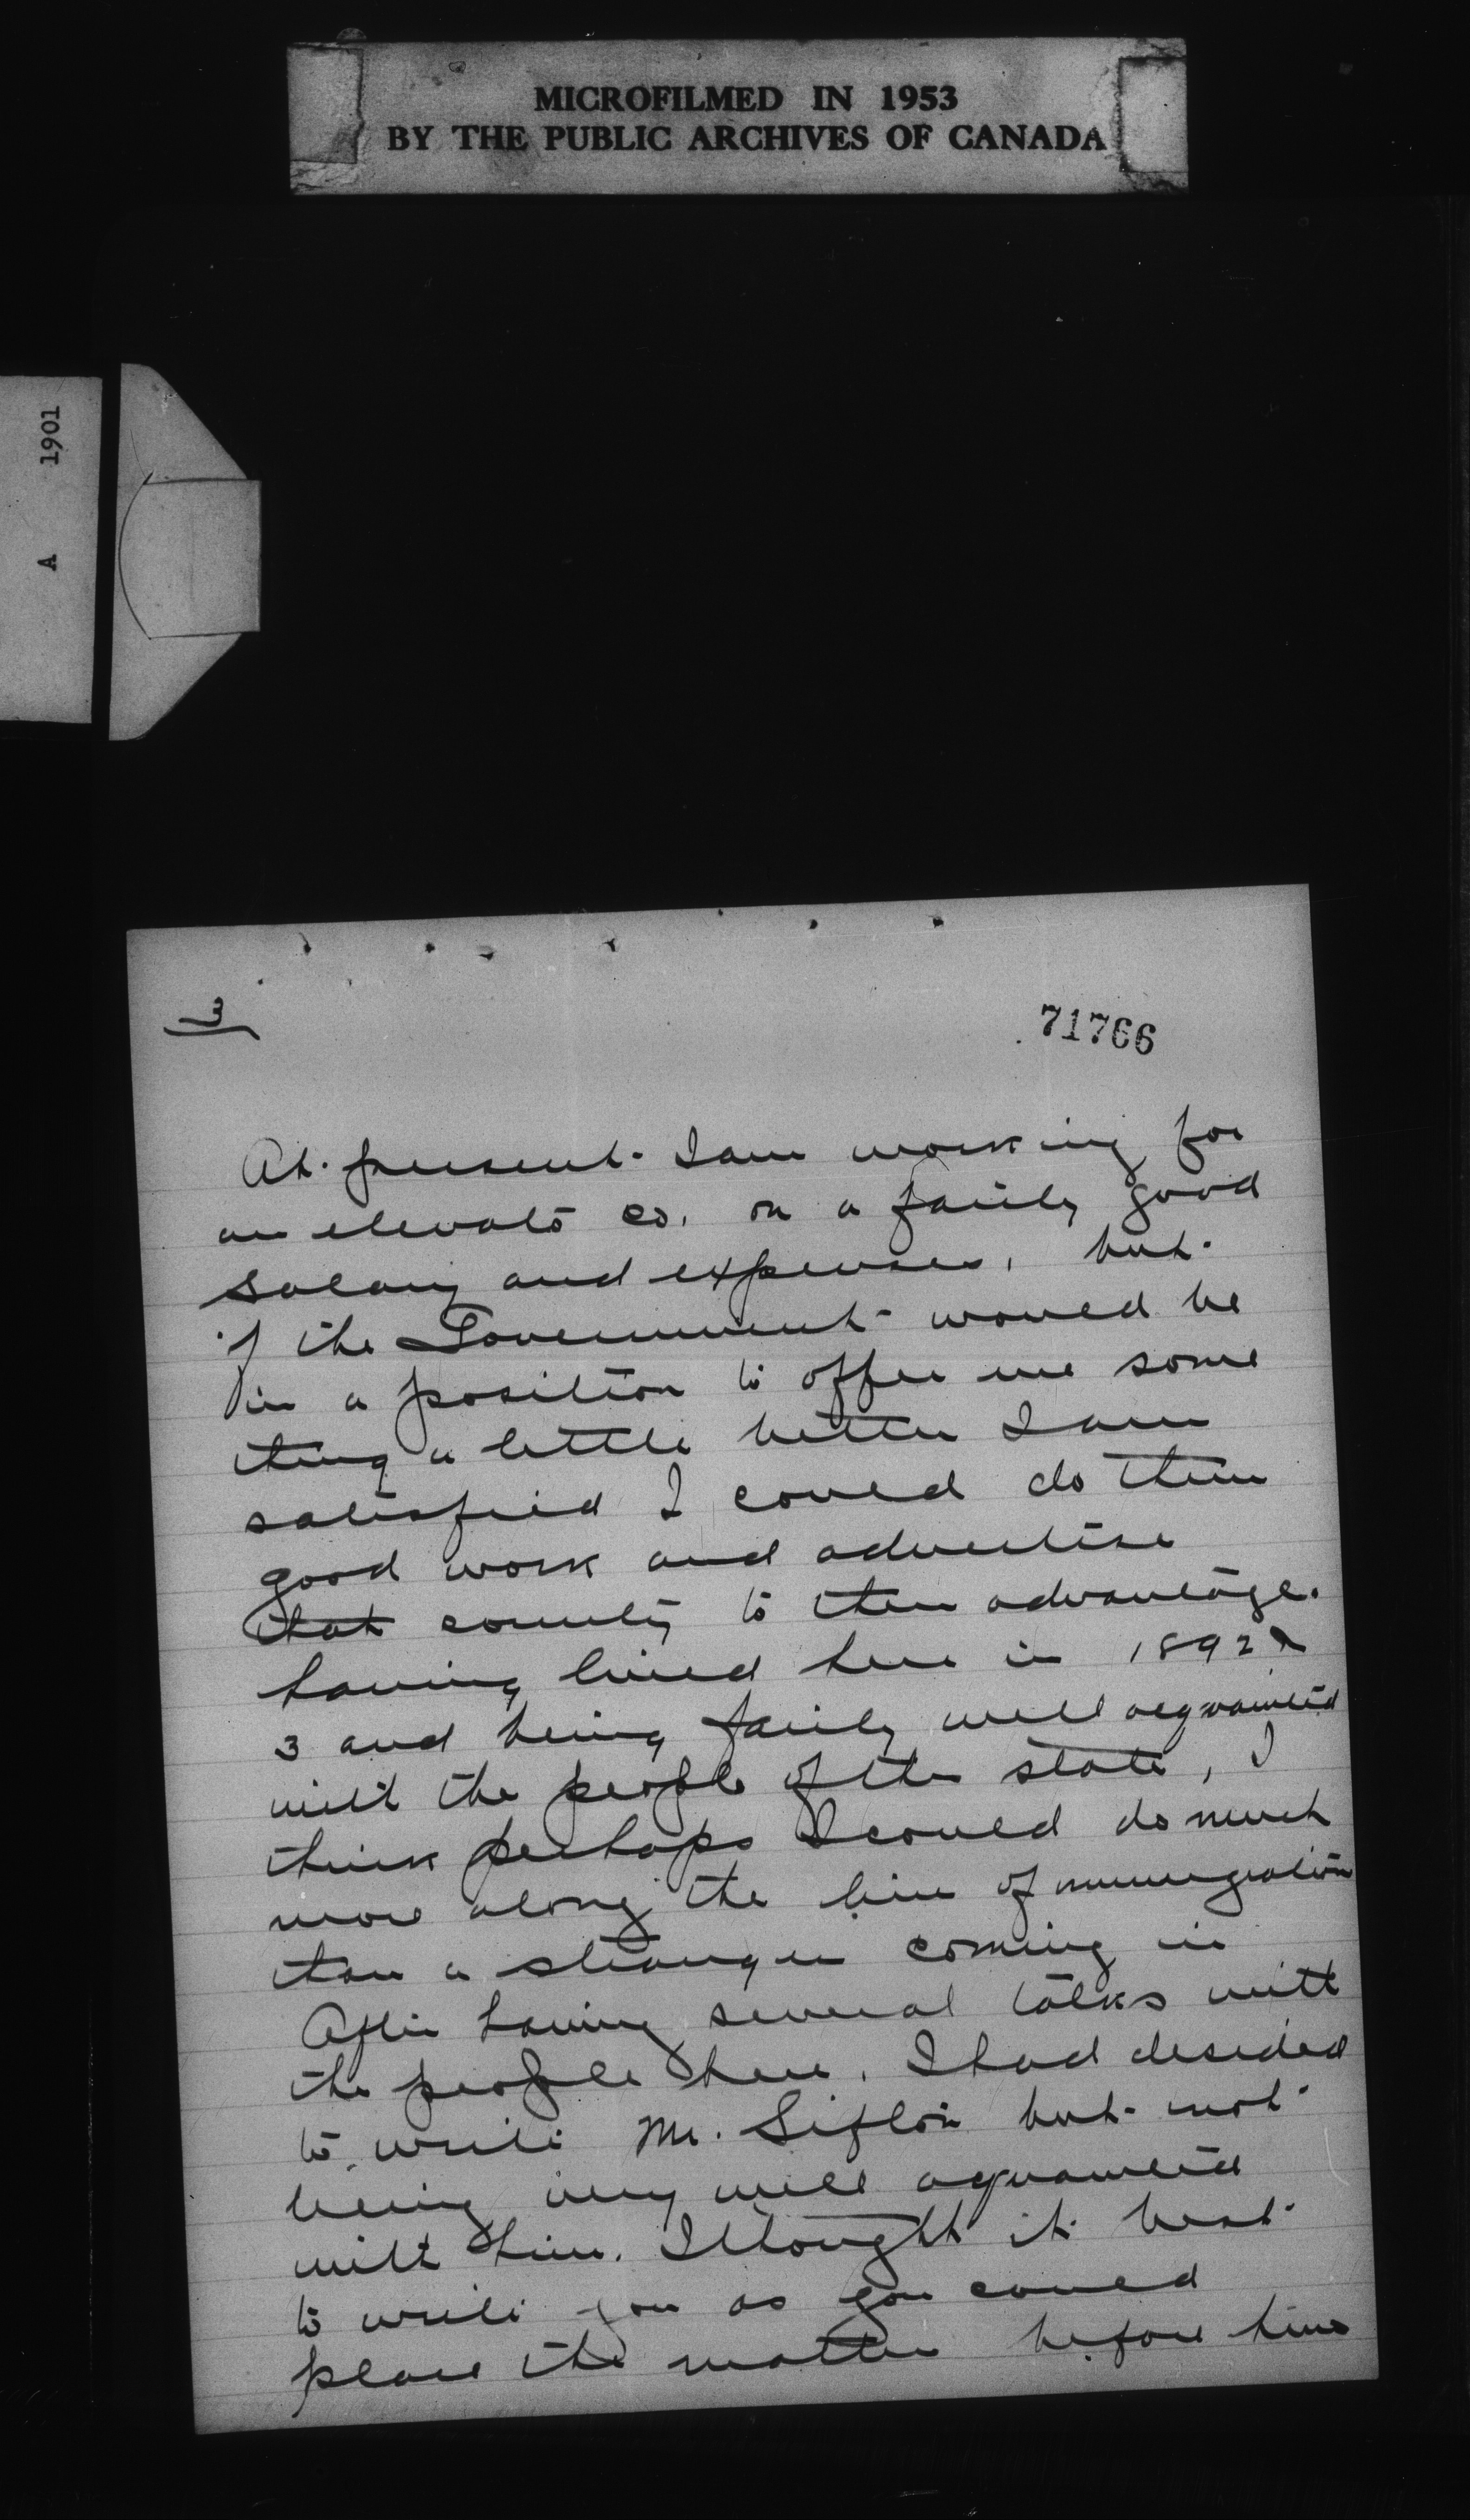 MICROFILMED IN 1953
BY THE PUBLIC ARCHIVES OF CANADA
A 1901
3
71766
At present I am working for
an elevato co. on a fairly good
salary and expenses, but
if the Government would be
in a position to offer me some
thing a little better I am
satisfied I could do them
good work and advertise
that country to their advantage.
having lived here in 1892 &
3 and being fairly well aqvainted
with the people of the state, I
think perhaps I could do much
more along the line of immigration
than a stranger coming in
After having several talks with
the people here, I had desided
to write Mr. Sifton but not
being very well aqvainted
with him. I thought it best
to write you as you could
place the matter before him